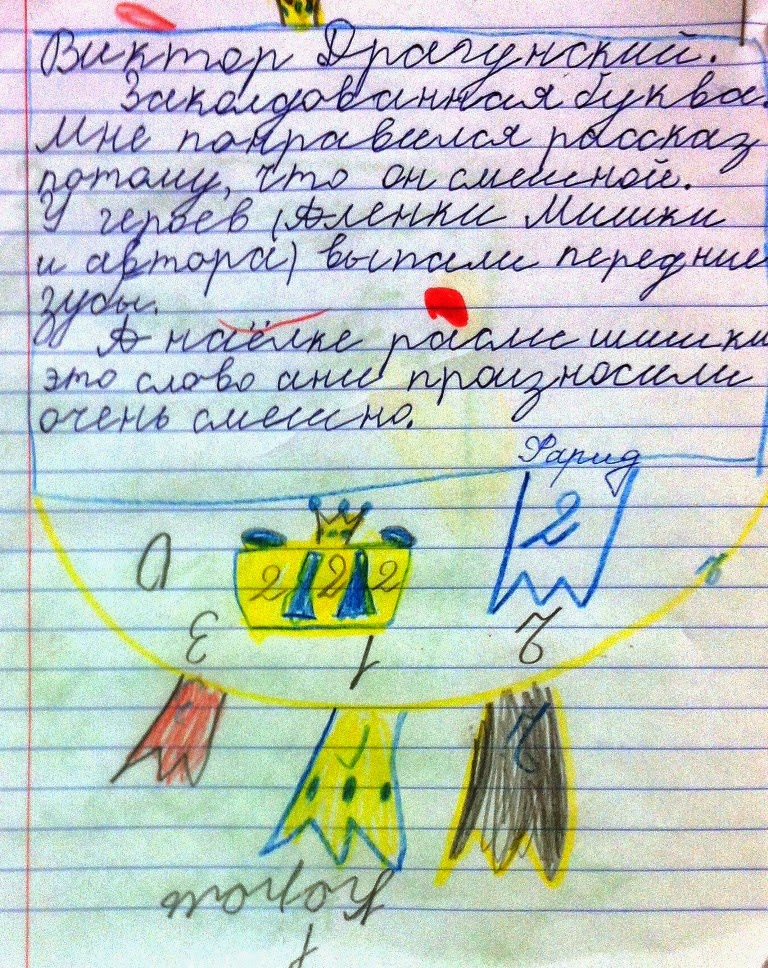 Виктор Драгунский.
Заколдованная буква.
Мне понравился рассказ
потому, что он смешной.
У героев (Аленки Мишки
и автора) выпали передние
зубы.
А на ёлке расли шишки
это слово ани произносили
очень смешно.
Фарид
2
2 2 2
3
1
2
2
Король
1